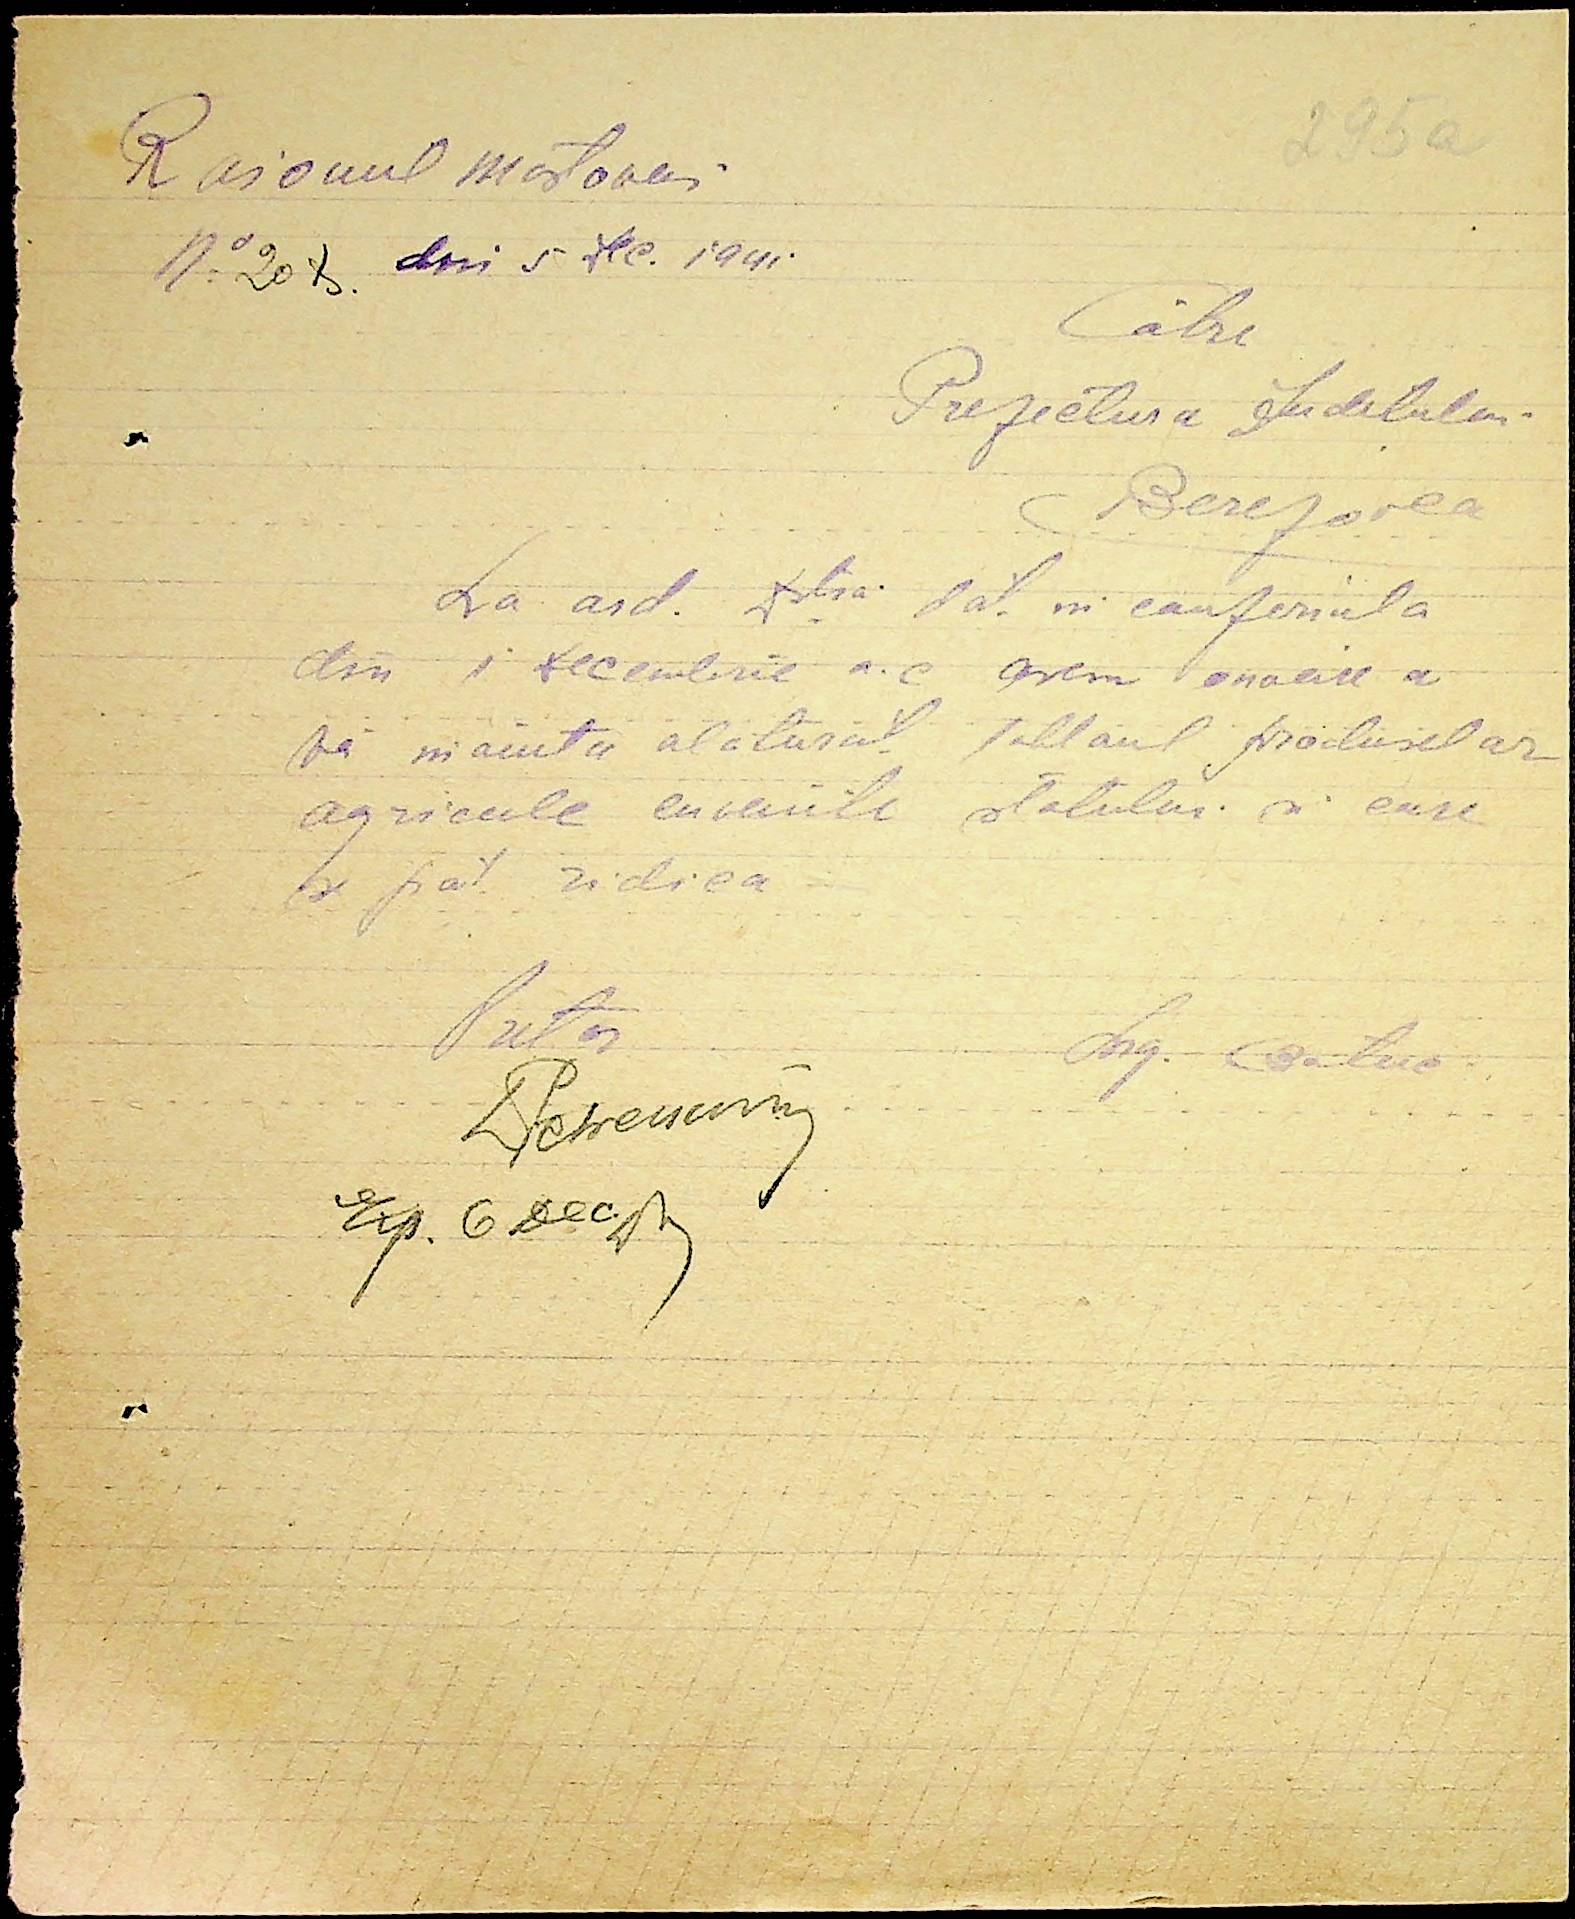 295a
Raionul Mostovoi
No. 20 din 5 Dec. 1941
Către
Prefectura Judetului
Berezovca
La ord. Dvtra. dat in conferinta
din 1 Decembrie a.c avem onoare a
vă nainta alaturat tabloul produselor
agricole cuvenite statului si care
se pot ridica
Pretor
Ing.
Exp. 6 Dec.